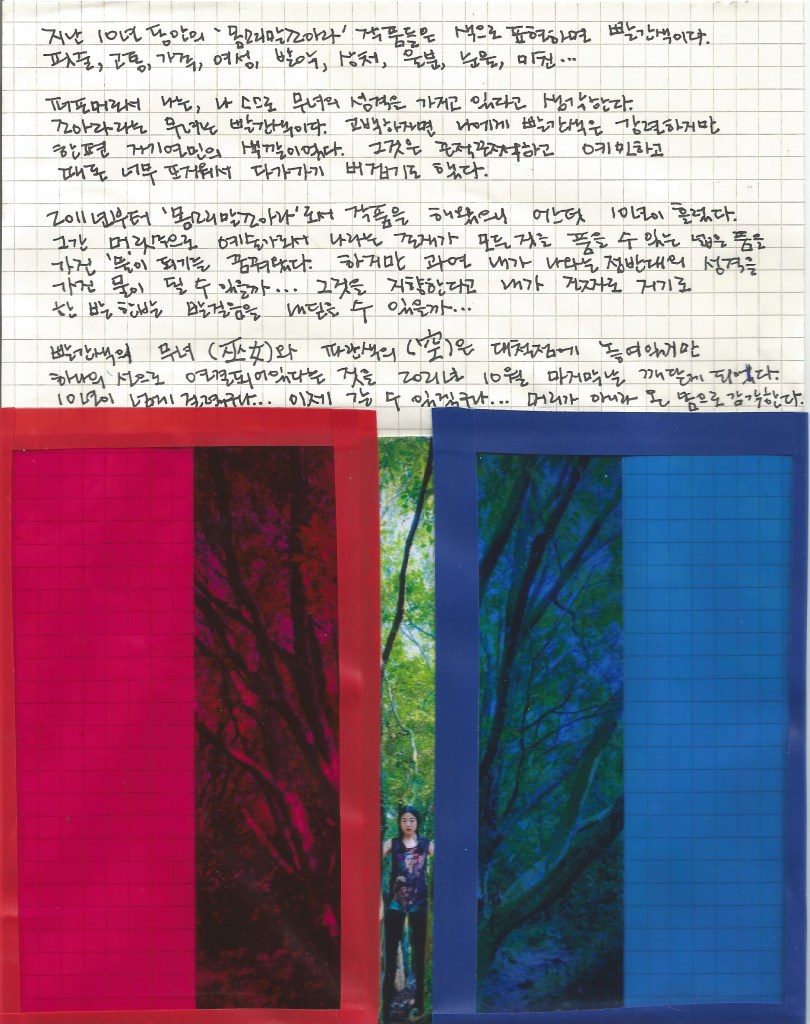 지난 10년 동안의 '몸소리말조아라' 작품들은 색으로 표현하면 빨간색이다.
핏줄, 고통, 가족, 여성, 발악, 상처, 울분, 눈물,
퍼포머로서 나는, 나 스스로 무녀의 성격을 가지고 있다고 생각한다.
조아라라는 무녀는 빨간색이다. 고백하자면 나에게 빨간색은 강렬하지만
한편 자기연민의 색깔이었다. 그것은 끈적끈적하고 예민하고
때론 너무 뜨거워서 다가가기 버겁기도 했다.
2011년부터 '몸소리말조아라'로서 작품을 해왔으니 어느덧 10년이 흘렀다.
그간 머릿속으로 예술가로서 나라는 존재가 모든 것을 품을 수 있는 넓은 품을
가진 '물'이 되기를 꿈꿔왔다. 하지만 과연 내가 나와는 정반대의 성격을
가진 물이 될 수 있을까... 그것을 지향한다고 내가 진짜로 거기로
한 발 한발 발걸음을 내딛을 수 있을까...
빨간색의 무녀(巫女)와 파란색의 (空)은 대척점에 놓여있지만
하나의 선으로 연결되어있다는 것을 2021년 10월 마지막날 깨닫게 되었다.
10년이 넘게 걸렸구나... 이제 갈 수 있겠구나... 머리가 아니라 온 몸으로 감각한다.